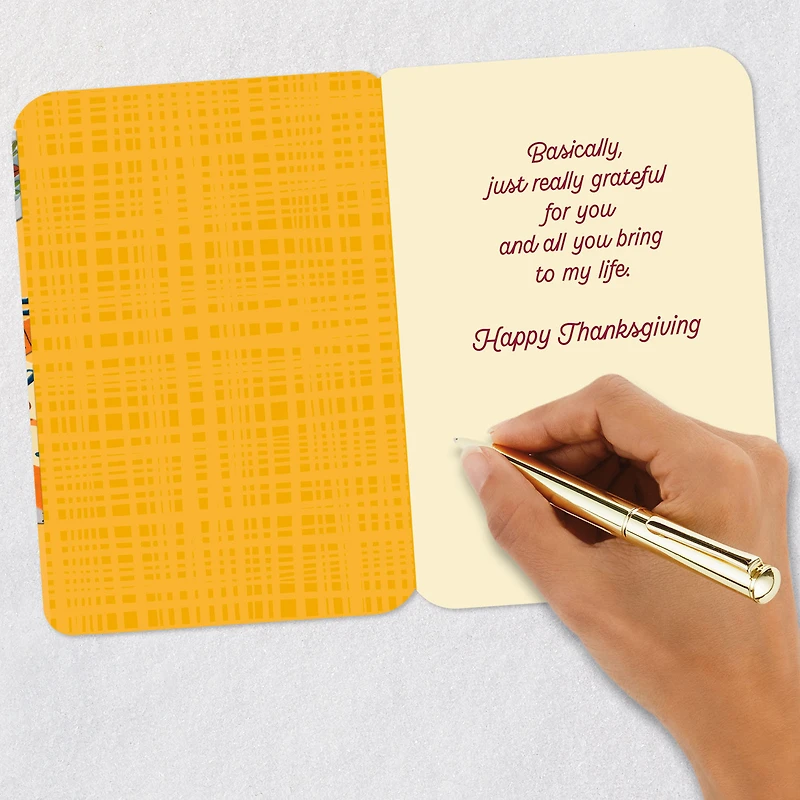 Basically,
just really grateful
for you
and all you bring
to my life.
Happy Thanksgiving